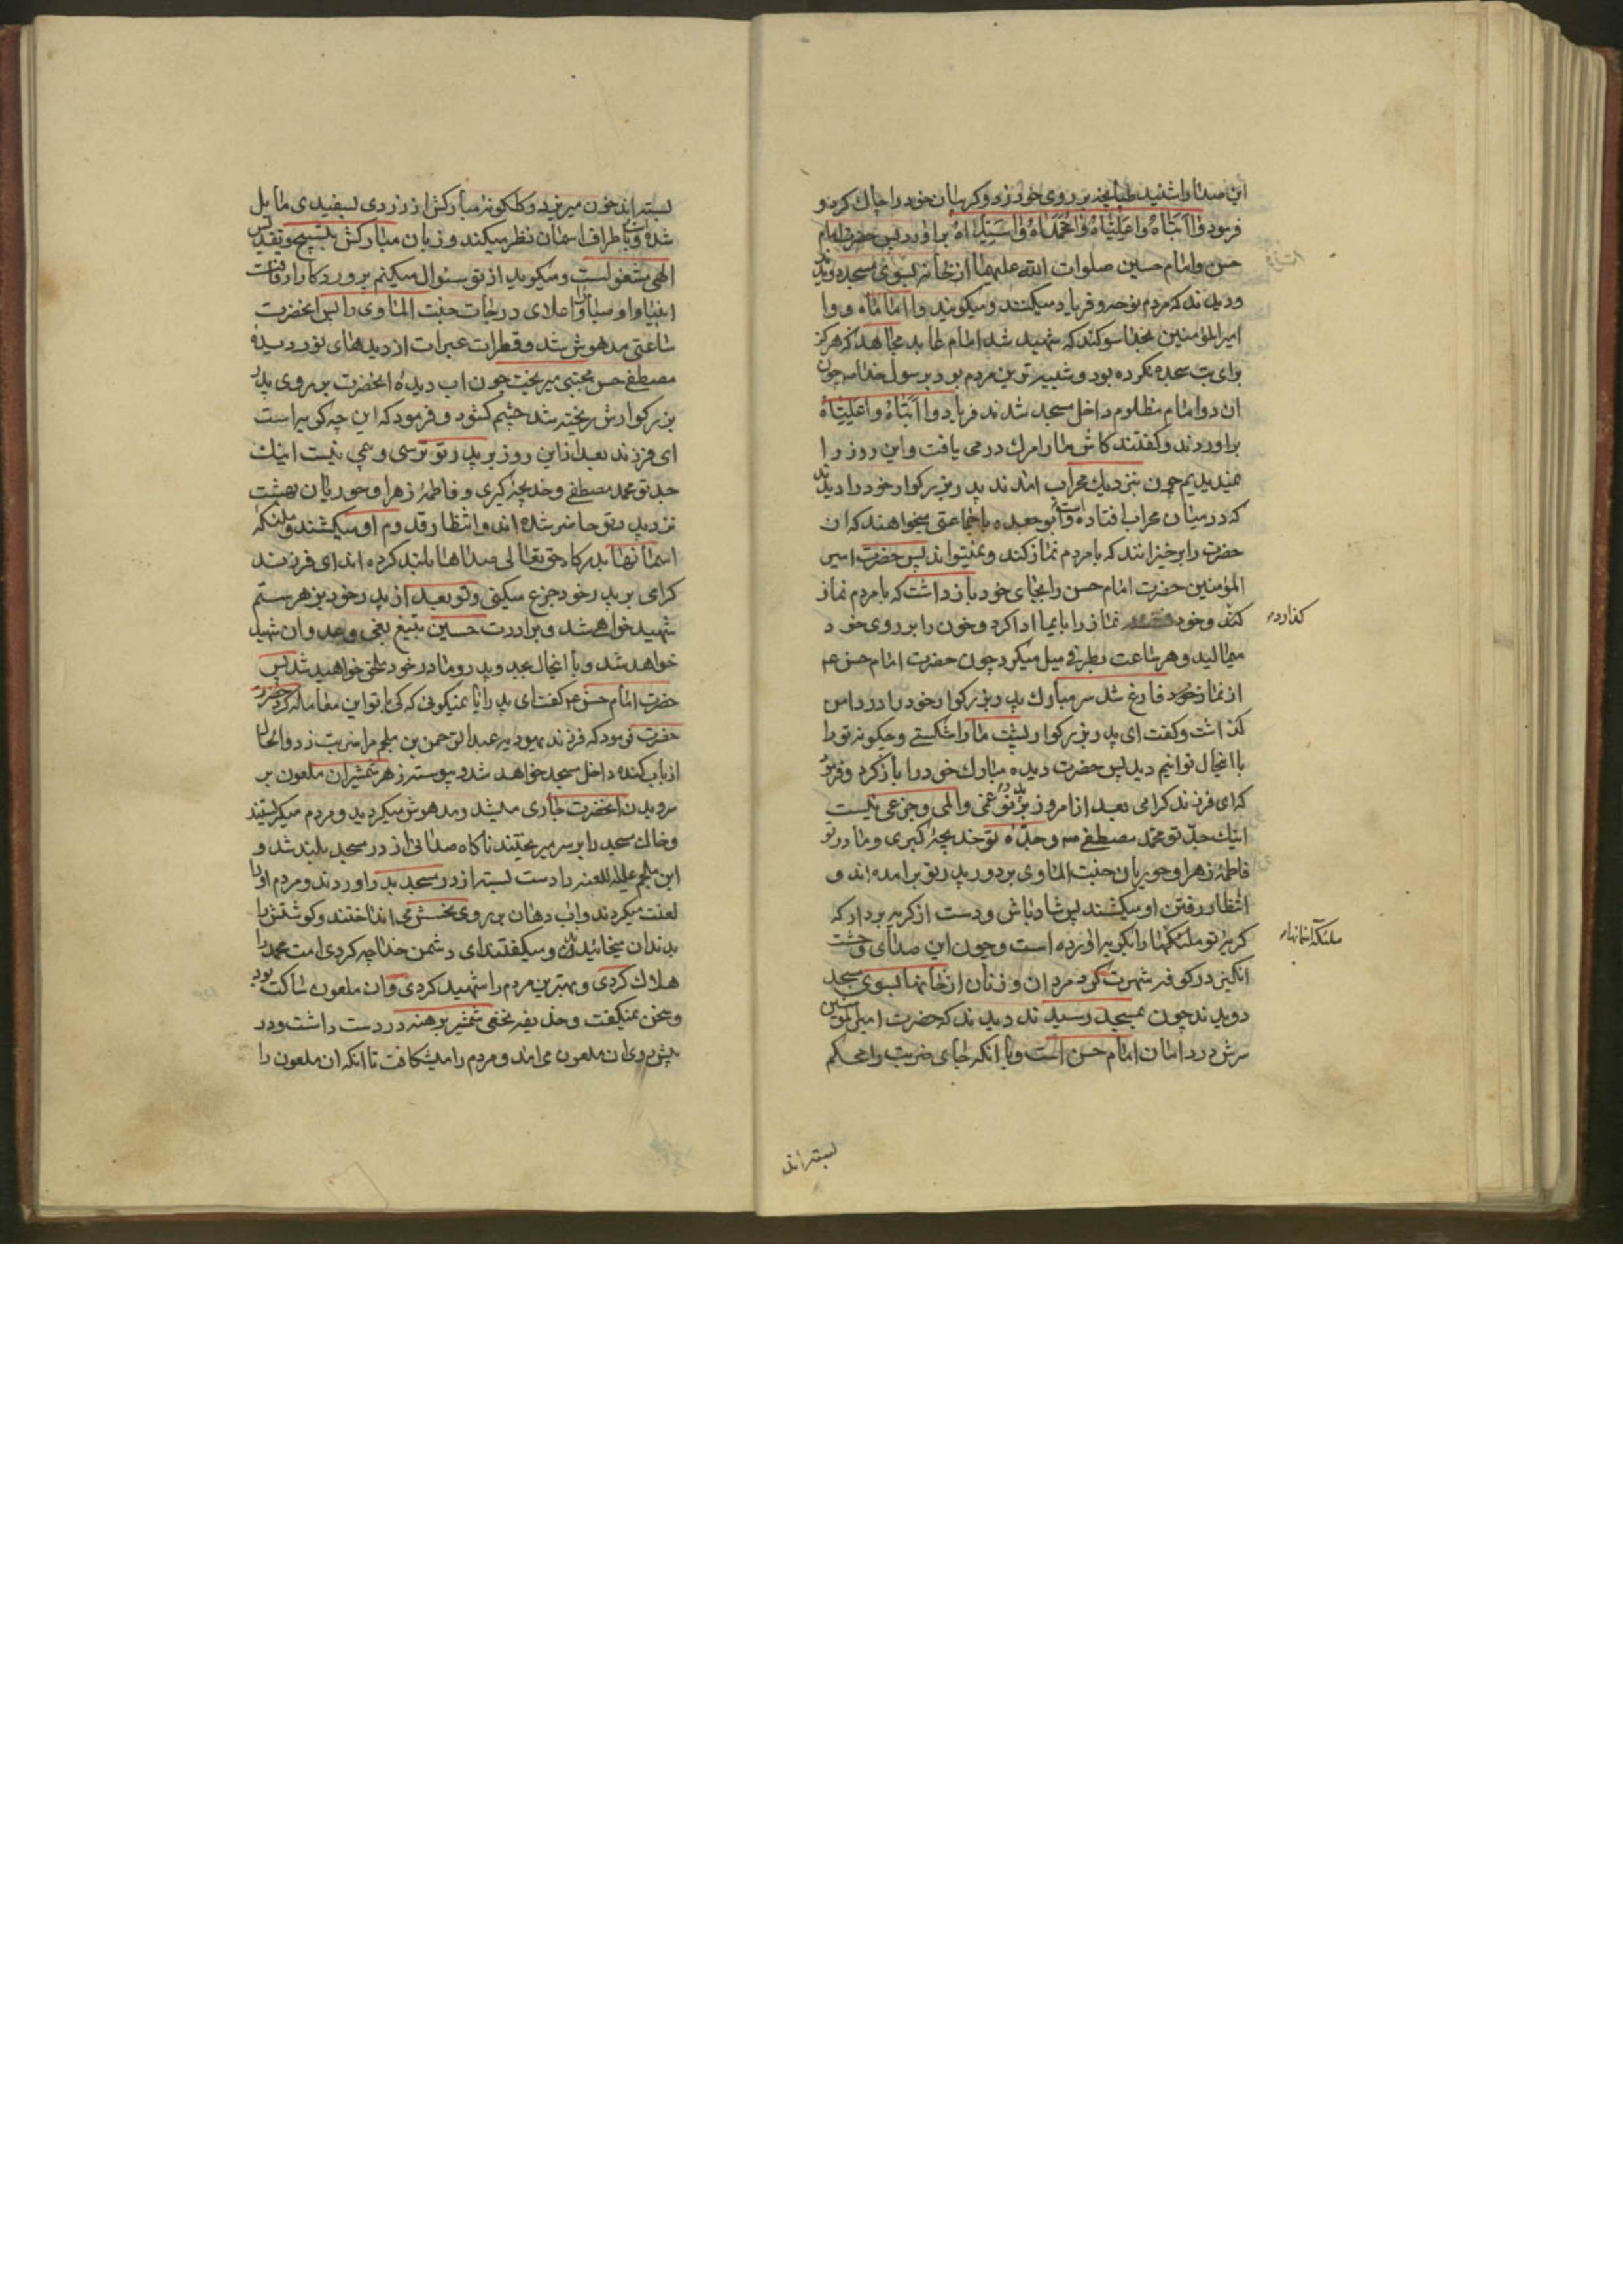 این صدا را شنید طپانچه بر روی خود زد و گریبان خود را چاک کرد و
فرمود وا ابتاه وا علیاه وا محمداه وا سیداه براورد پس حضرت امام
حسن و امام حسین صلوات الله علیهما از خانه بسوی مسجد دویدند
و دیدند که مردم نوحه و فریاد میکنند و میکویند وا اماماه و وا
امیر المؤمنین بخدا سوکند که شهید شد امام عابد مجاهد که هرکز
برای بت سجده نکرده بود و شبیه ترین مردم بود برسول خدا ص چون
ان دو امام مظلوم داخل مسجد شدند فریاد وا ابتاه وا علیاه
براوردند و کفتند کاش ما را مرک در می یافت و این روز را
نمیدیدیم چون بنزدیک محراب امدند پدر بزرکوار خود را دیدند
که در میان محراب افتاده است و ابو جعده با جماعتی میخواهند که ان
حضرت را برخیزانند که با مردم نماز کند و نمیتواند پس حضرت امیر
المؤمنین حضرت امام حسن را بجای خود باز داشت که با مردم نماز
کند و خود نماز را بایما ادا کرد و خون را بر روی خود
گذارده
میمالید و هر ساعت بطرفی میل میکرد چون حضرت امام حسن ع
از نماز خود فارغ شد سر مبارک پدر بزرکوار خود را در دامن
کذاشت و کفت ای پدر بزرکوار پشت ما را شکستی و چکونه تو را
با اینحال توانیم دید پس حضرت دیده مبارک خود را باز کرد و فرمود
که ای فرزند کرامی بعد از امروز بر پدر تو غمی و المی و جزعی نیست
اینک جد تو محمد مصطفی ص و جده تو خدیجه کبری و مادر تو
فاطمه زهرا و حوریان جنت الماوی بر دور پدر تو برامده اند و
انتظار رفتن او میکشند پس شاد باش و دست از کریه بردار که
کریه تو ملئکها را بکریه اورده است و چون این صدای وحشت
ملئکه اسمانها
انکیز در کوفه شهرت کرد مردان و زنان از خانها بسوی مسجد
دویدند چون بمسجد رسیدند دیدند که حضرت امیر المؤمنین
سرش در دامان امام حسن است و با انکه جای ضربت را محکم
بسته اند
بسته اند خون میریزد و کلکونه مبارکش از زردی بسفیدی مایل
شده است و باطراف اسمان نظر میکند و زبان مبارکش بتسبیح و تقدیس
الهی مشغولست و میکوید از تو سئوال میکنم پروردکارا رفاقت
انبیا و اوصیا و اعلای درجات جنت الماوی را پس انحضرت
ساعتی مدهوش شد و قطرات عبرات از دیدهای نور دیده
مصطفی حسن مجتبی میریخت چون اب دیده انحضرت بر روی پدر
بزرکوارش ریخته شد چشم کشود و فرمود که این چه کریه است
ای فرزند بعد از این روز بر پدر تو ترسی و غمی نیست اینک
جد تو محمد مصطفی و خدیجه کبری و فاطمه زهرا و حوریان بهشت
نزد پدر تو حاضر شده اند و انتظار قدوم او میکشند و ملئکه
اسمانها بدرکاه حق تعالی صداها بلند کرده اند ای فرزند
کرامی بر پدر خود جزع میکنی و تو بعد از پدر خود بزهر ستم
شهید خواهی شد و برادرت حسین بتیغ بغی و عدوان شهید
خواهد شد و با اینحال بجد و پدر و مادر خود ملحق خواهید شد پس
حضرت امام حسن ع کفت ای پدر ایا نمیکوئی که کی با تو این معامله کرد
حضرت فرمود که فرزند یهودیه عبد الرحمن بن ملجم مرا ضربت زد و الحال
از باب کنده داخل مسجد خواهد شد و پیوسته زهر شمشیر ان ملعون بر
سر و بدن انحضرت جاری میشد و مدهوش میکردید و مردم میکریستند
و خاک مسجد را بر سر میریختند ناکاه صدائی از در مسجد بلند شد و
ابن ملجم علیه اللعنه را دست بسته از در مسجد دراوردند و مردم او را
لعنت میکردند و اب دهان بر روی نحسش می انداختند و کوشتش را
بدندان میخائیدند و میکفتند ای دشمن خدا چه کردی امت محمد را
هلاک کردی و بهترین مردم را شهید کردی و ان ملعون ساکت بود
و سخن نمیکفت و حذیفه نخعی شمشیر برهنه در دست داشت و در
پیش روی ان ملعون می امد و مردم را میشکافت تا انکه ان ملعون را